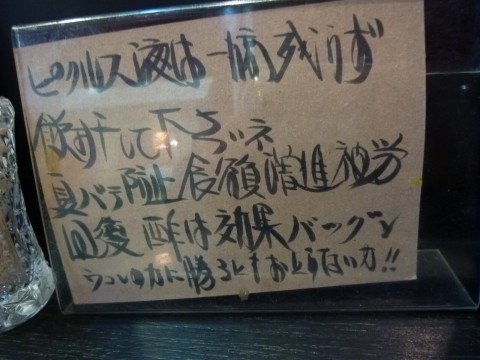 ピクルス液は一滴残さず
飲み干して下さいネ
夏バテ防止食欲増進疲労
回復酢は効果バツグン
ウコンの力に勝るともおとらない力!!